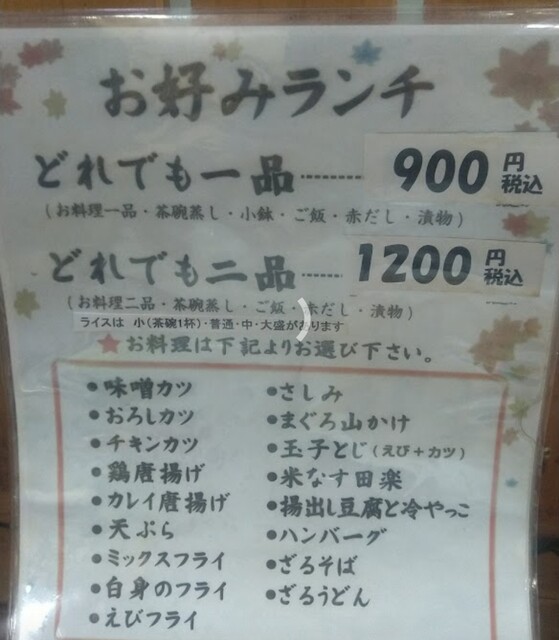 お好みランチ
どれでも一品 900円 税込
(お料理一品・茶碗蒸し・小鉢・ご飯・赤だし・漬物)
どれでも二品 1200円 税込
(お料理二品・茶碗蒸し・ご飯・赤だし・漬物)
ライスは 小(茶碗1杯)・普通・中・大盛があります
★お料理は下記よりお選び下さい。
•味噌カツ
•おろしカツ
•チキンカツ
•鶏唐揚げ
•カレイ唐揚げ
•天ぷら
•ミックスフライ
•白身のフライ
•えびフライ
•さしみ
•まぐろ山かけ
•玉子とじ(えび+カツ)
•米なす田楽
•揚出し豆腐と冷やっこ
•ハンバーグ
•ざるそば
•ざるうどん